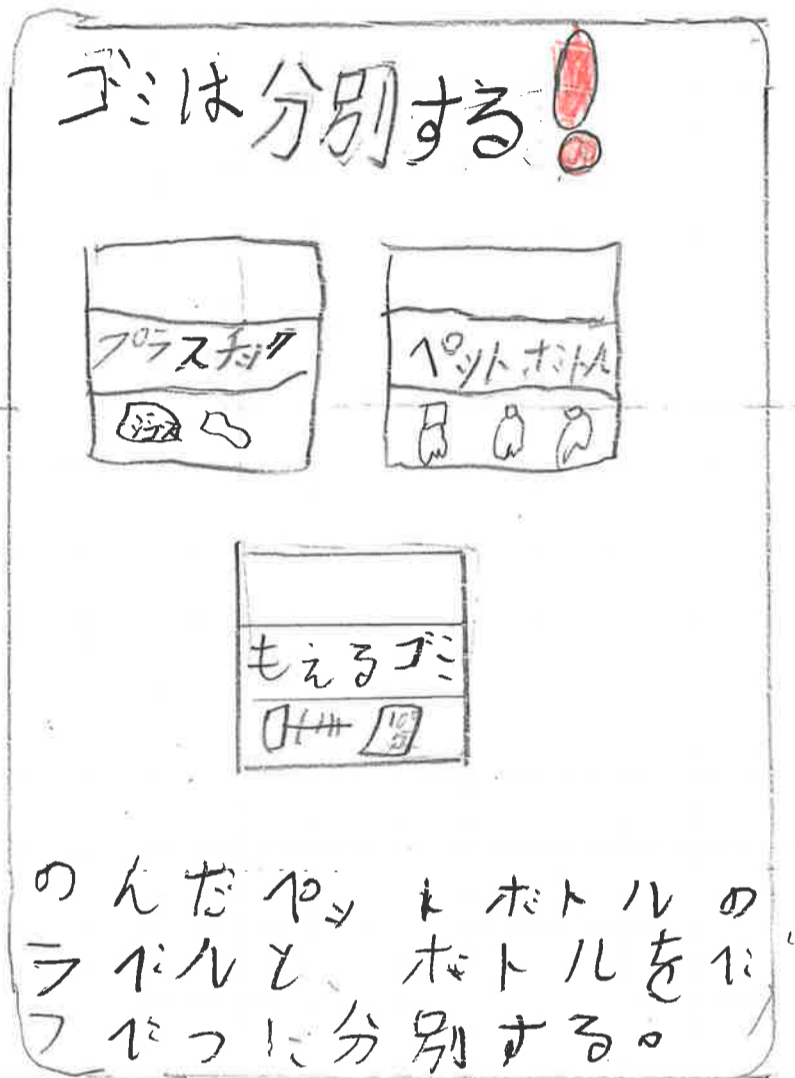 ゴミは分別する!
プラスチック
ペットボトル
もえるゴミ
のんだペットボトルの
ラベルと、ボトルをべ
つべつに分別する。